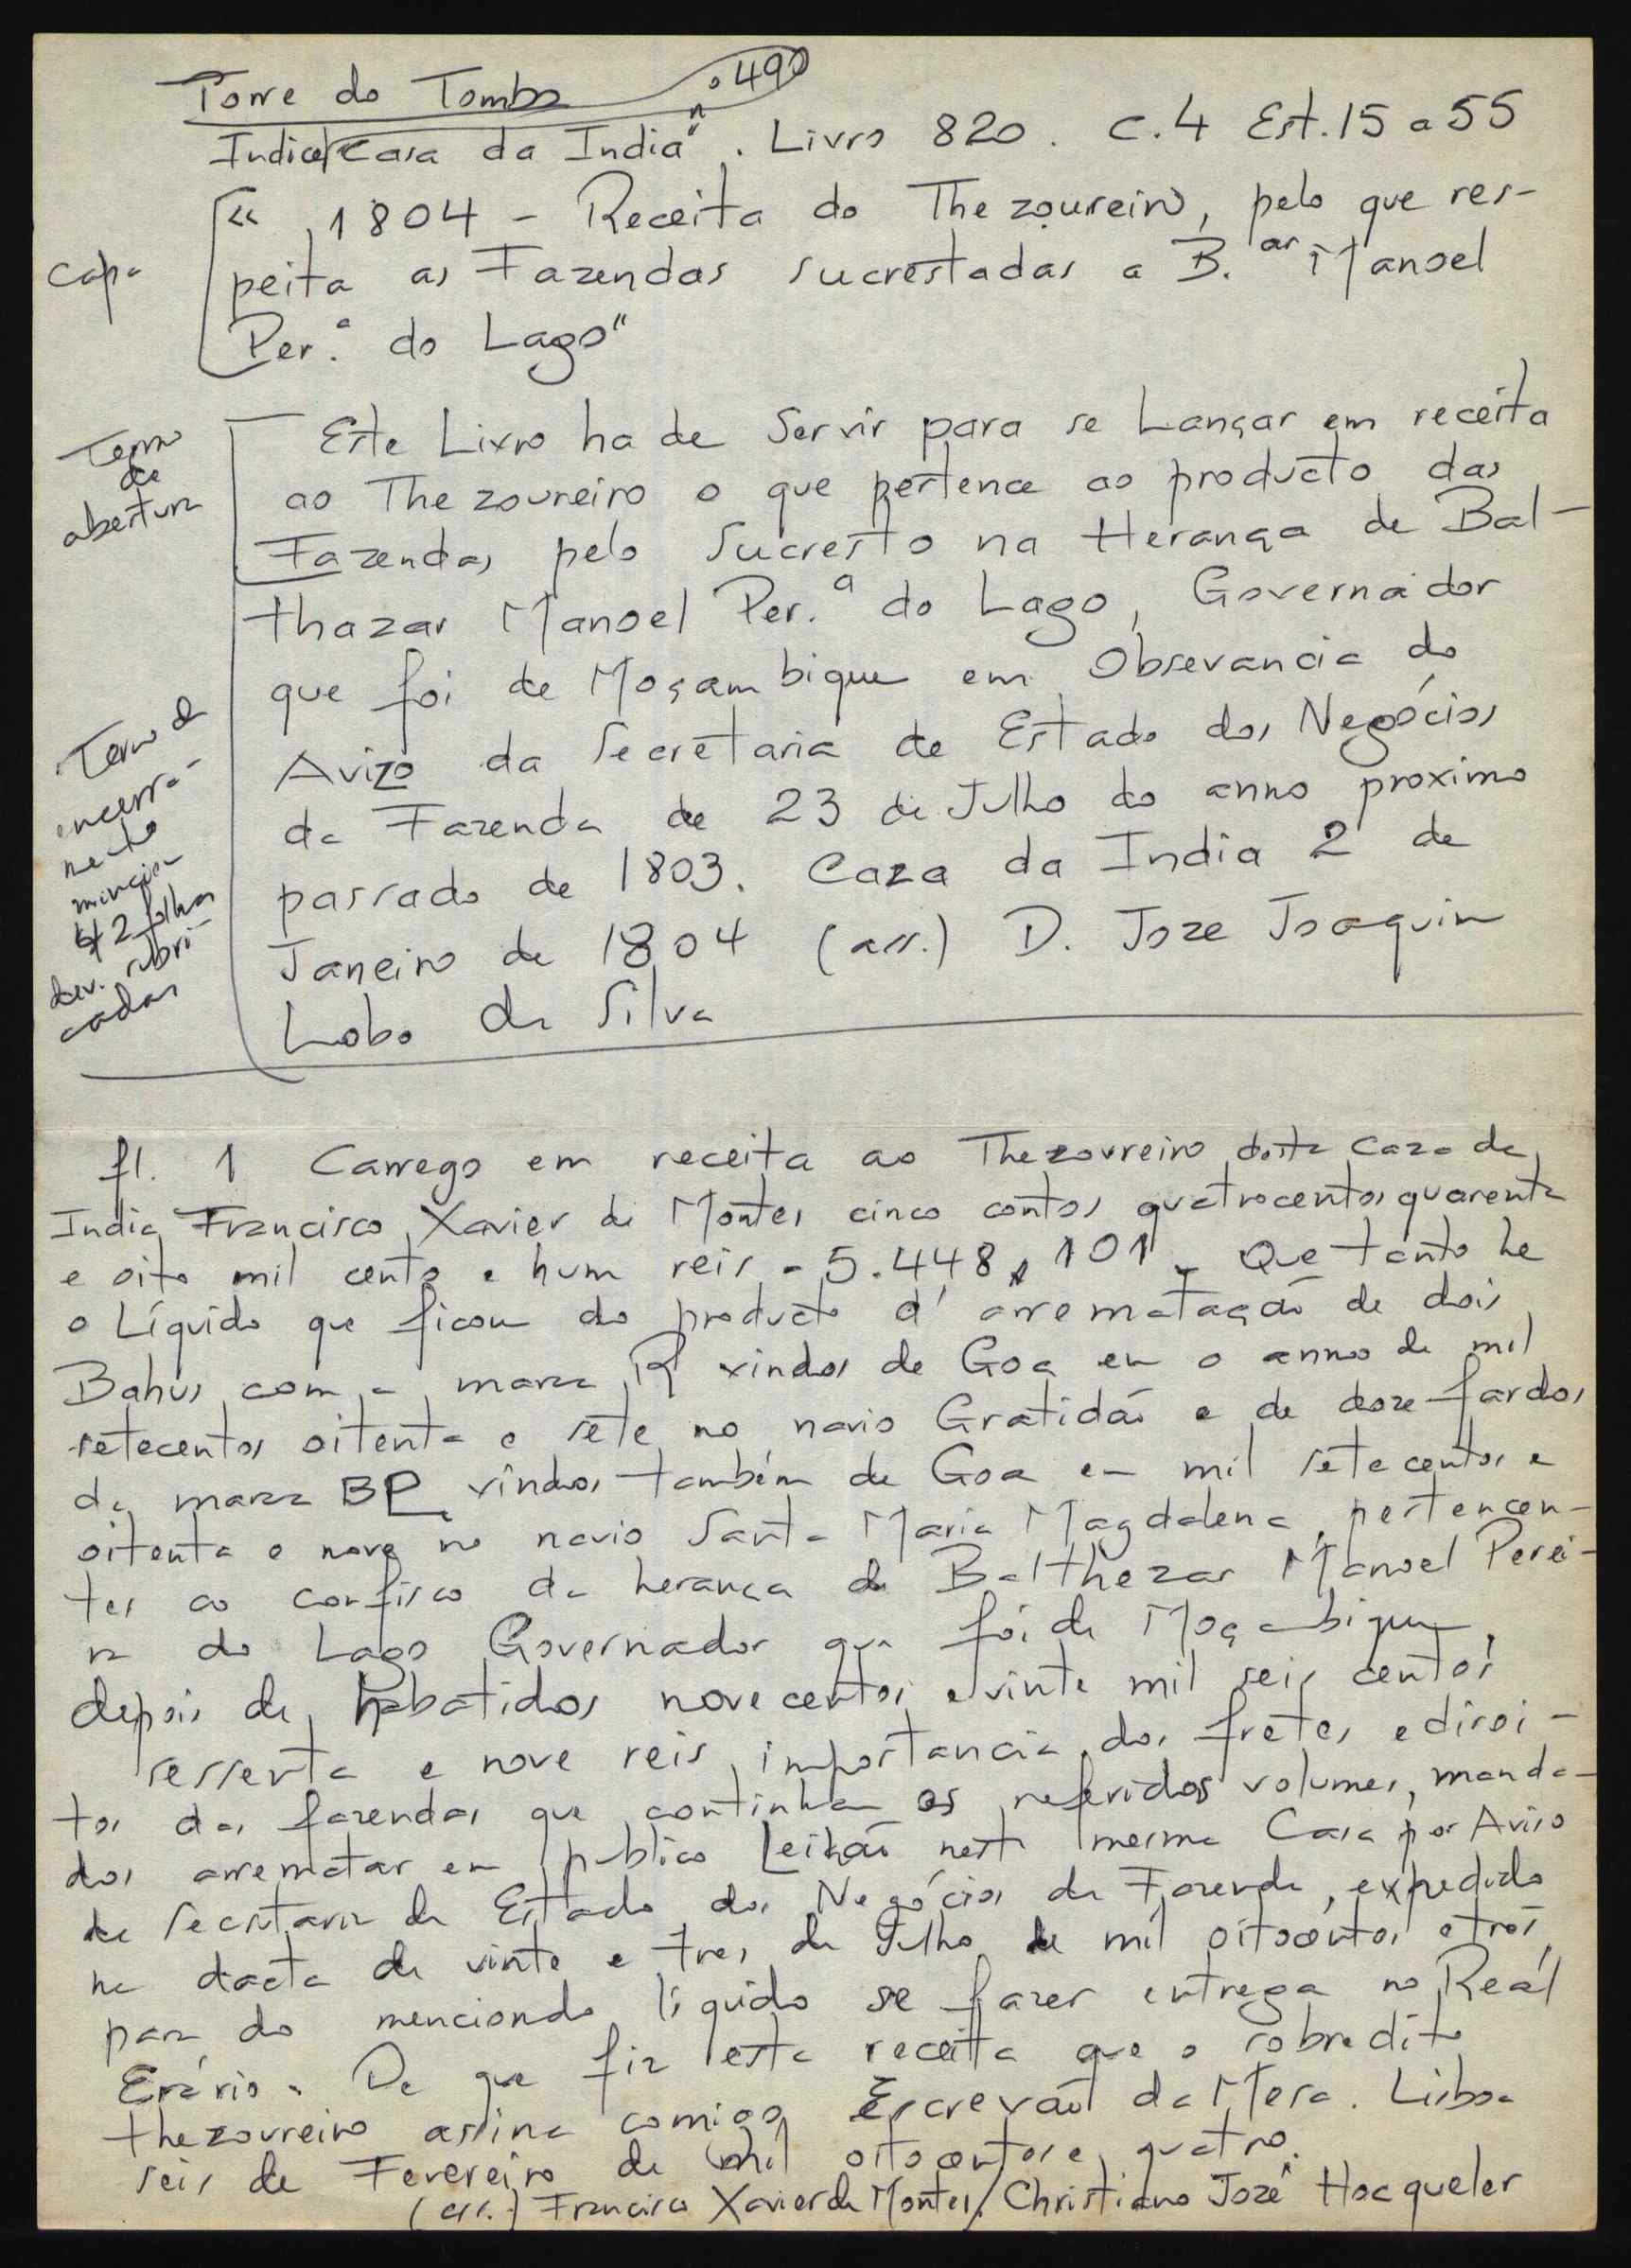 Torre do Tombo nº 490
Indice "Casa da India". Livro 820. C.4 Est. 15 a 55
capa
« 1804 - Receita do Thezoureiro, pelo que res-
peita as Fazendas sucrestadas a B.ar Manoel
Per.ª do Lago"
Termo
de
abertura
Este Livro ha de Servir para se Lançar em receita
ao Thezoureiro o que pertence ao producto das
Fazendas pelo Sucresto na Herança de Bal-
thazar Manoel Per.ª do Lago, Governador
que foi de Moçambique em Obsevancia do
Avizo da Secretaria de Estado dos Negócios
da Fazenda de 23 de Julho do anno proximo
passado de 1803. Caza da India 2 de
Janeiro de 1804 (ass.) D. Joze Joaquim
Lobo da Silva
Termo de
encerra-
mento
42 folhas
rubri-
cadas
fl. 1 Carrego em receita ao Thezoureiro desta Caza da
India Francisco Xavier de Montes cinco contos quatrocentos quarenta
e oito mil cento e hum reis - 5.448$101 - Que tanto he
o Líquido que ficou do producto d'arrematação de dois
Bahus com a marca R vindos de Goa em o anno de mil
setecentos oitenta e sete no navio Gratidão e de doze fardos
da marca BP vindos também de Goa em mil setecentos e
oitenta e nove no navio Santa Maria Magdalena, pertencen-
tes ao confisco da herança de Balthezar Manoel Perei-
ra do Lago Governador que foi de Moçambique,
depois de rebatidos novecentos e vinte mil seis centos
sessenta e nove reis, importancia dos fretes e direi-
tos das fazendas que continhão os referidos volumes, manda-
dos arrematar em publico Leilão nesta mesma Casa por Aviso
da Secretaria de Estado dos Negócios da Fazenda, expedido
na dacta de vinte e tres de Julho de mil oitocentos e tres
para do mencionado líquido se fazer entrega no Reál
Erário. De que fiz esta receita que o sobredito
thezoureiro assina comigo Escrevão da Mesa. Lisboa
seis de Fevereiro de mil oitocentos e quatro.
(ass.) Francisco Xavier de Montes / Christiano Jozé Hocqueler